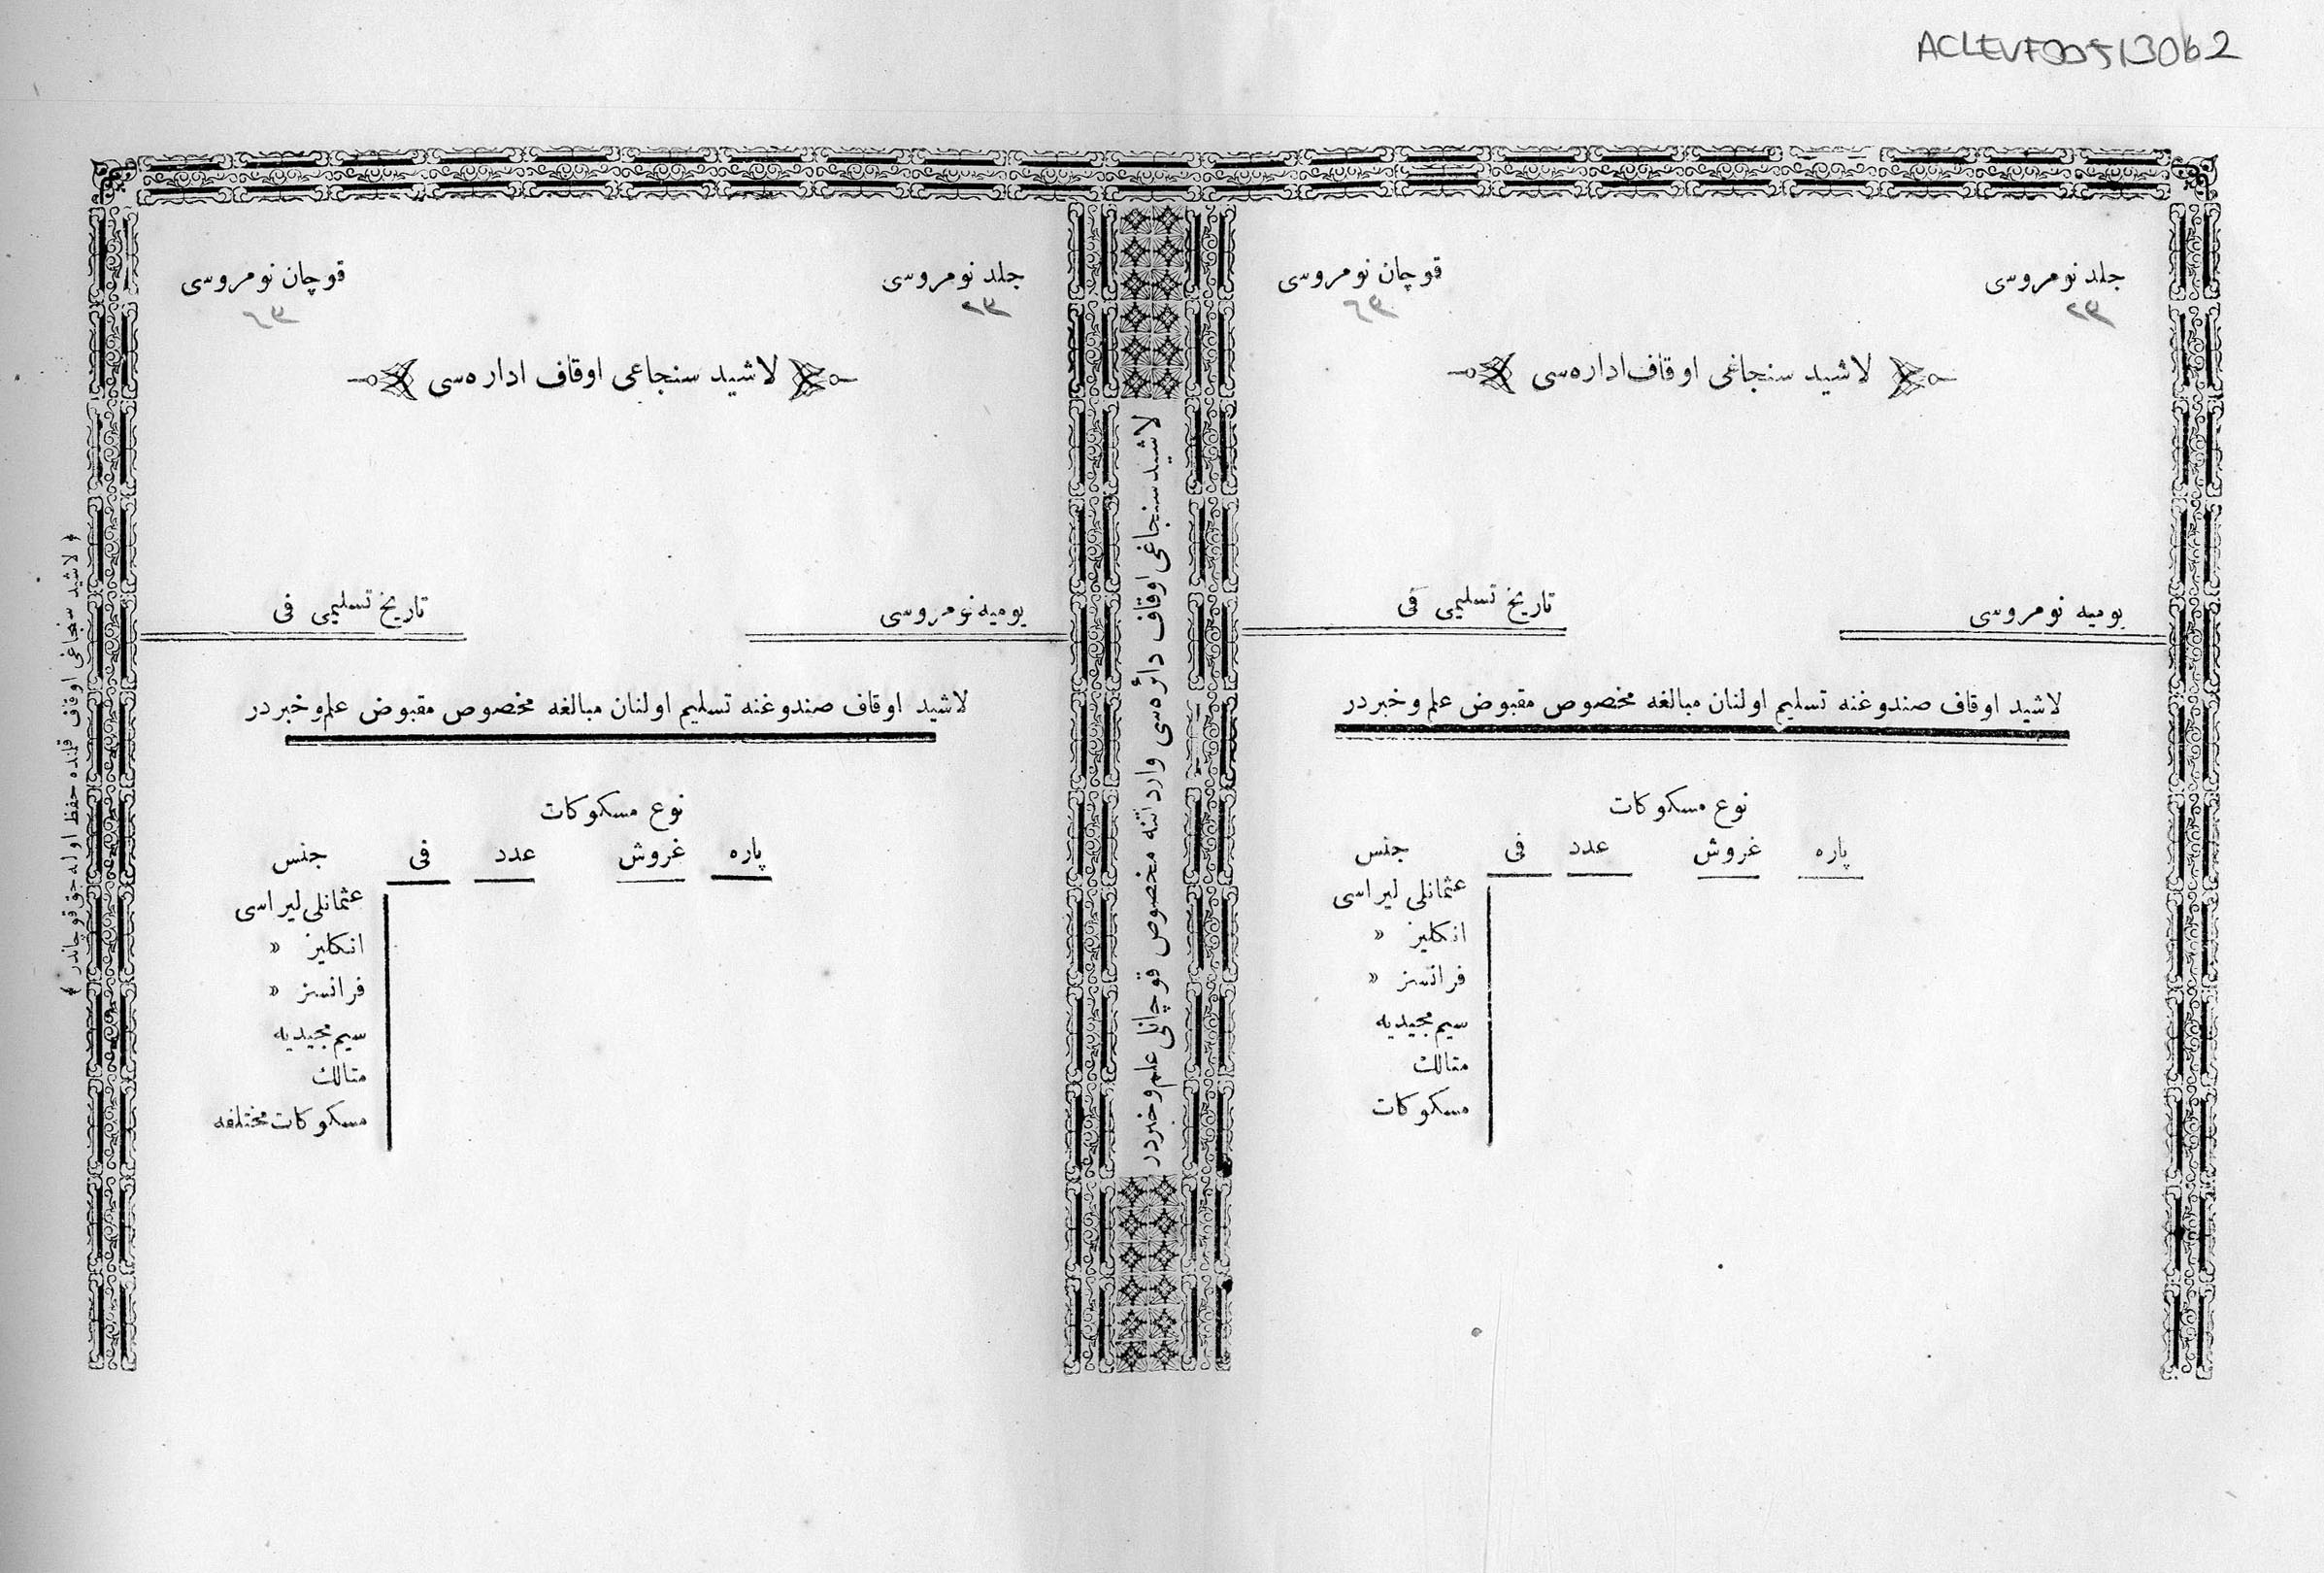 ACLEVF00513062
جلد نومروسی
٢٣
قوچان نومروسی
٦٣
لاشید سنجاغی اوقاف اداره‌سی
یومیه نومروسی
تاریخ تسلیمی فی
لاشید اوقاف صندوغنه تسلیم اولنان مبالغه مخصوص مقبوض علم وخبردر
نوع مسکوکات
پاره غروش عدد فی جنس
عثمانلی لیراسی
انکلیز »
فرانسز »
سیم مجیدیه
متالك
مسکوکات
لاشید سنجاغی اوقاف دائره‌سی وارداتنه مخصوص قوچانلی علم وخبردر
جلد نومروسی
٢٣
قوچان نومروسی
٦٣
لاشید سنجاعی اوقاف اداره‌سی
یومیه نومروسی
تاریخ تسلیمی فی
لاشید اوقاف صندوغنه تسلیم اولنان مبالغه مخصوص مقبوض علم وخبردر
نوع مسکوکات
پاره غروش عدد فی جنس
عثمانلی لیراسی
انکلیز »
فرانسز »
سیم مجیدیه
متالك
مسکوکات مختلفه
﴿ لاشید سنجاغی اوقاف قلمنده حفظ اوله‌جق قوچاندر ﴾